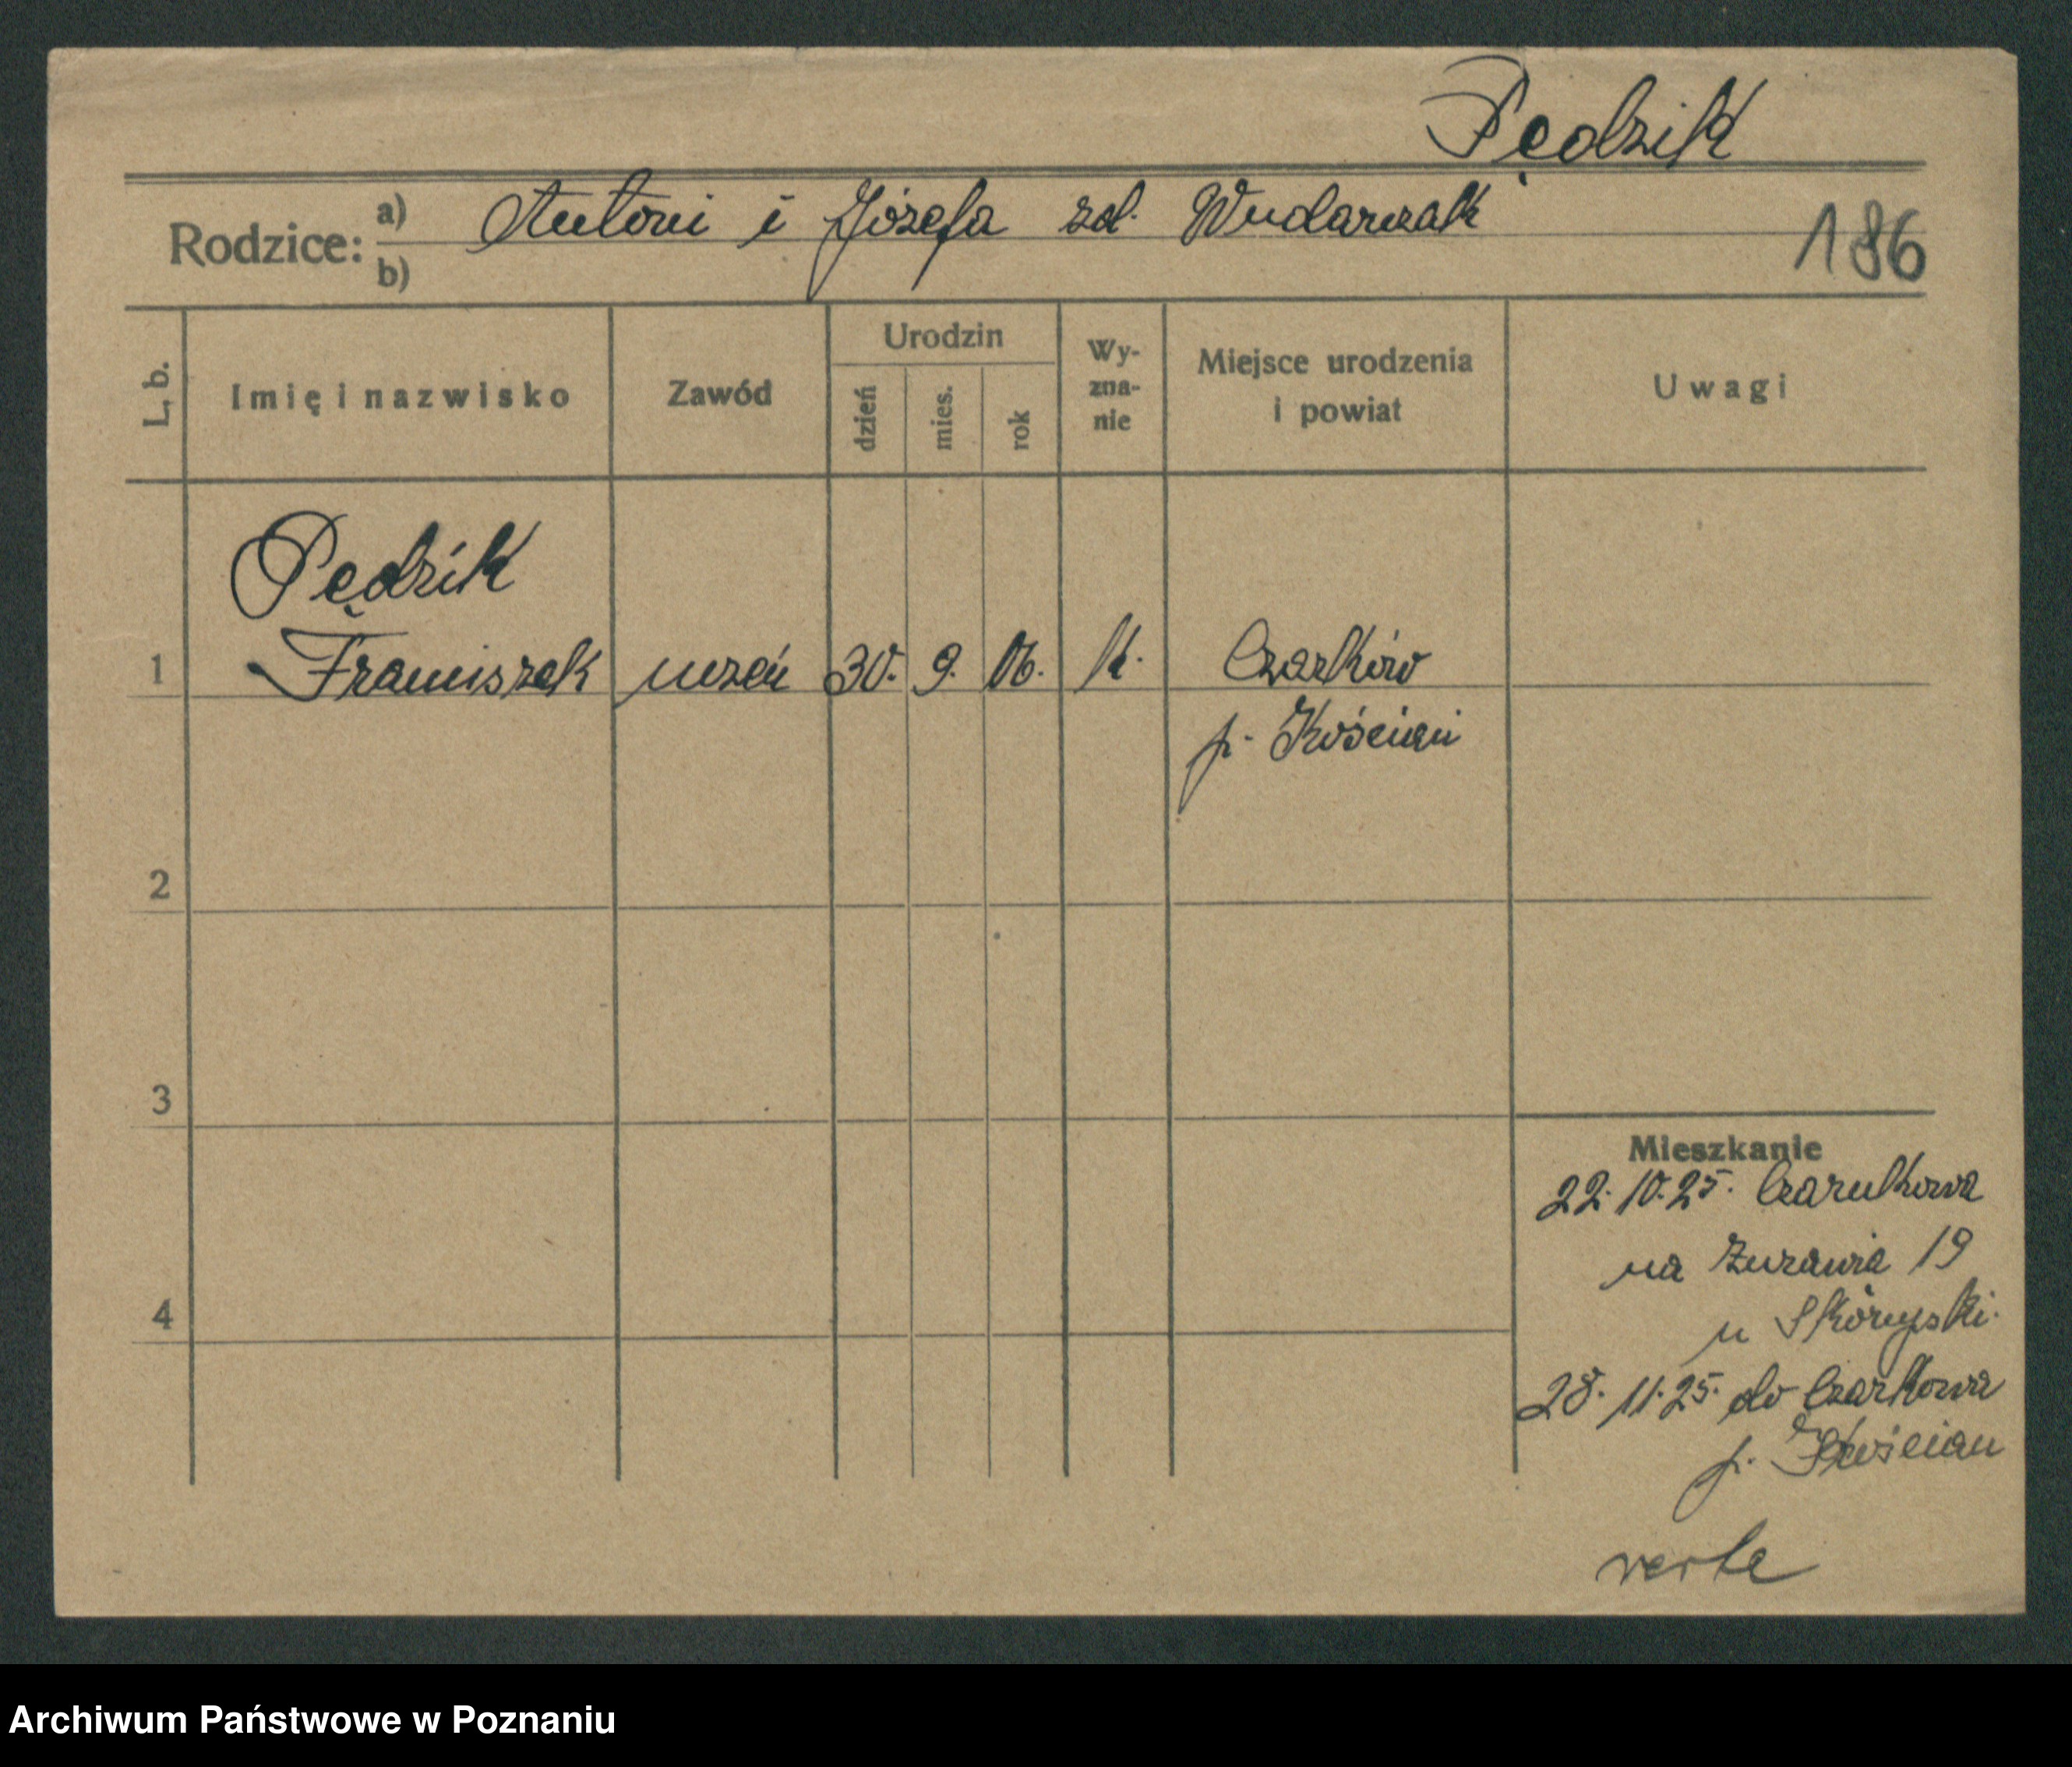 Pędzik
Rodzice: a) Antoni i Józefa zd. Wudarczak
b)
186
L, b.
Imię i nazwisko
Zawód
Urodzin
dzień
mies.
rok
Wy-
zna-
nie
Miejsce urodzenia
i powiat
Uwagi
Pędzik
1 Franciszek uczeń 30. 9. 06. k. Czarków
p. Kościan
2
3
4
Mieszkanie
22. 10. 25. Czarnkowa
na Żurawia 19
u
28. 11. 25. do Czarkowa
p. Kościan
verte
Archiwum Państwowe w Poznaniu